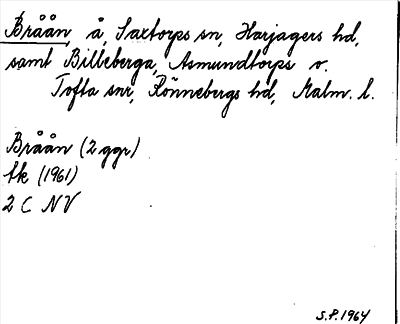 Bråån å, Saxtorps sn, Harjagers hd,
samt Billeberga, Asmundtorps o.
Tofta snr, Rönnebergs hd, Malm. l.
Bråån (2 ggr)
tk (1961)
2 C NV
S.P. 1964